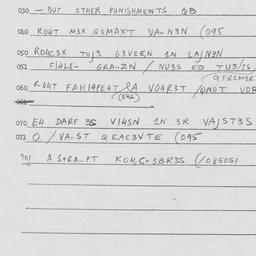 030 — BUT OTHER PUNISHMENTS QB
040 RO4T M3X G3MAXT VA..N3N (095
050 RO4C3X TOJ3 G3VE5N 1N LAJN3N
051 FI4LS- GRA..ZN / NU3S EQ TU3/1S
QFR1M3R
060 R04T FAHI4PE4T RA V04R3T /QNOT VOR
(342)
070 E4 DARF 3S VI4SN 1N 3R VAJST3S
071 O / VA..ST QKAC3VTE (095
901 A S+RA..PT KO4,G+3BR3S (/085051